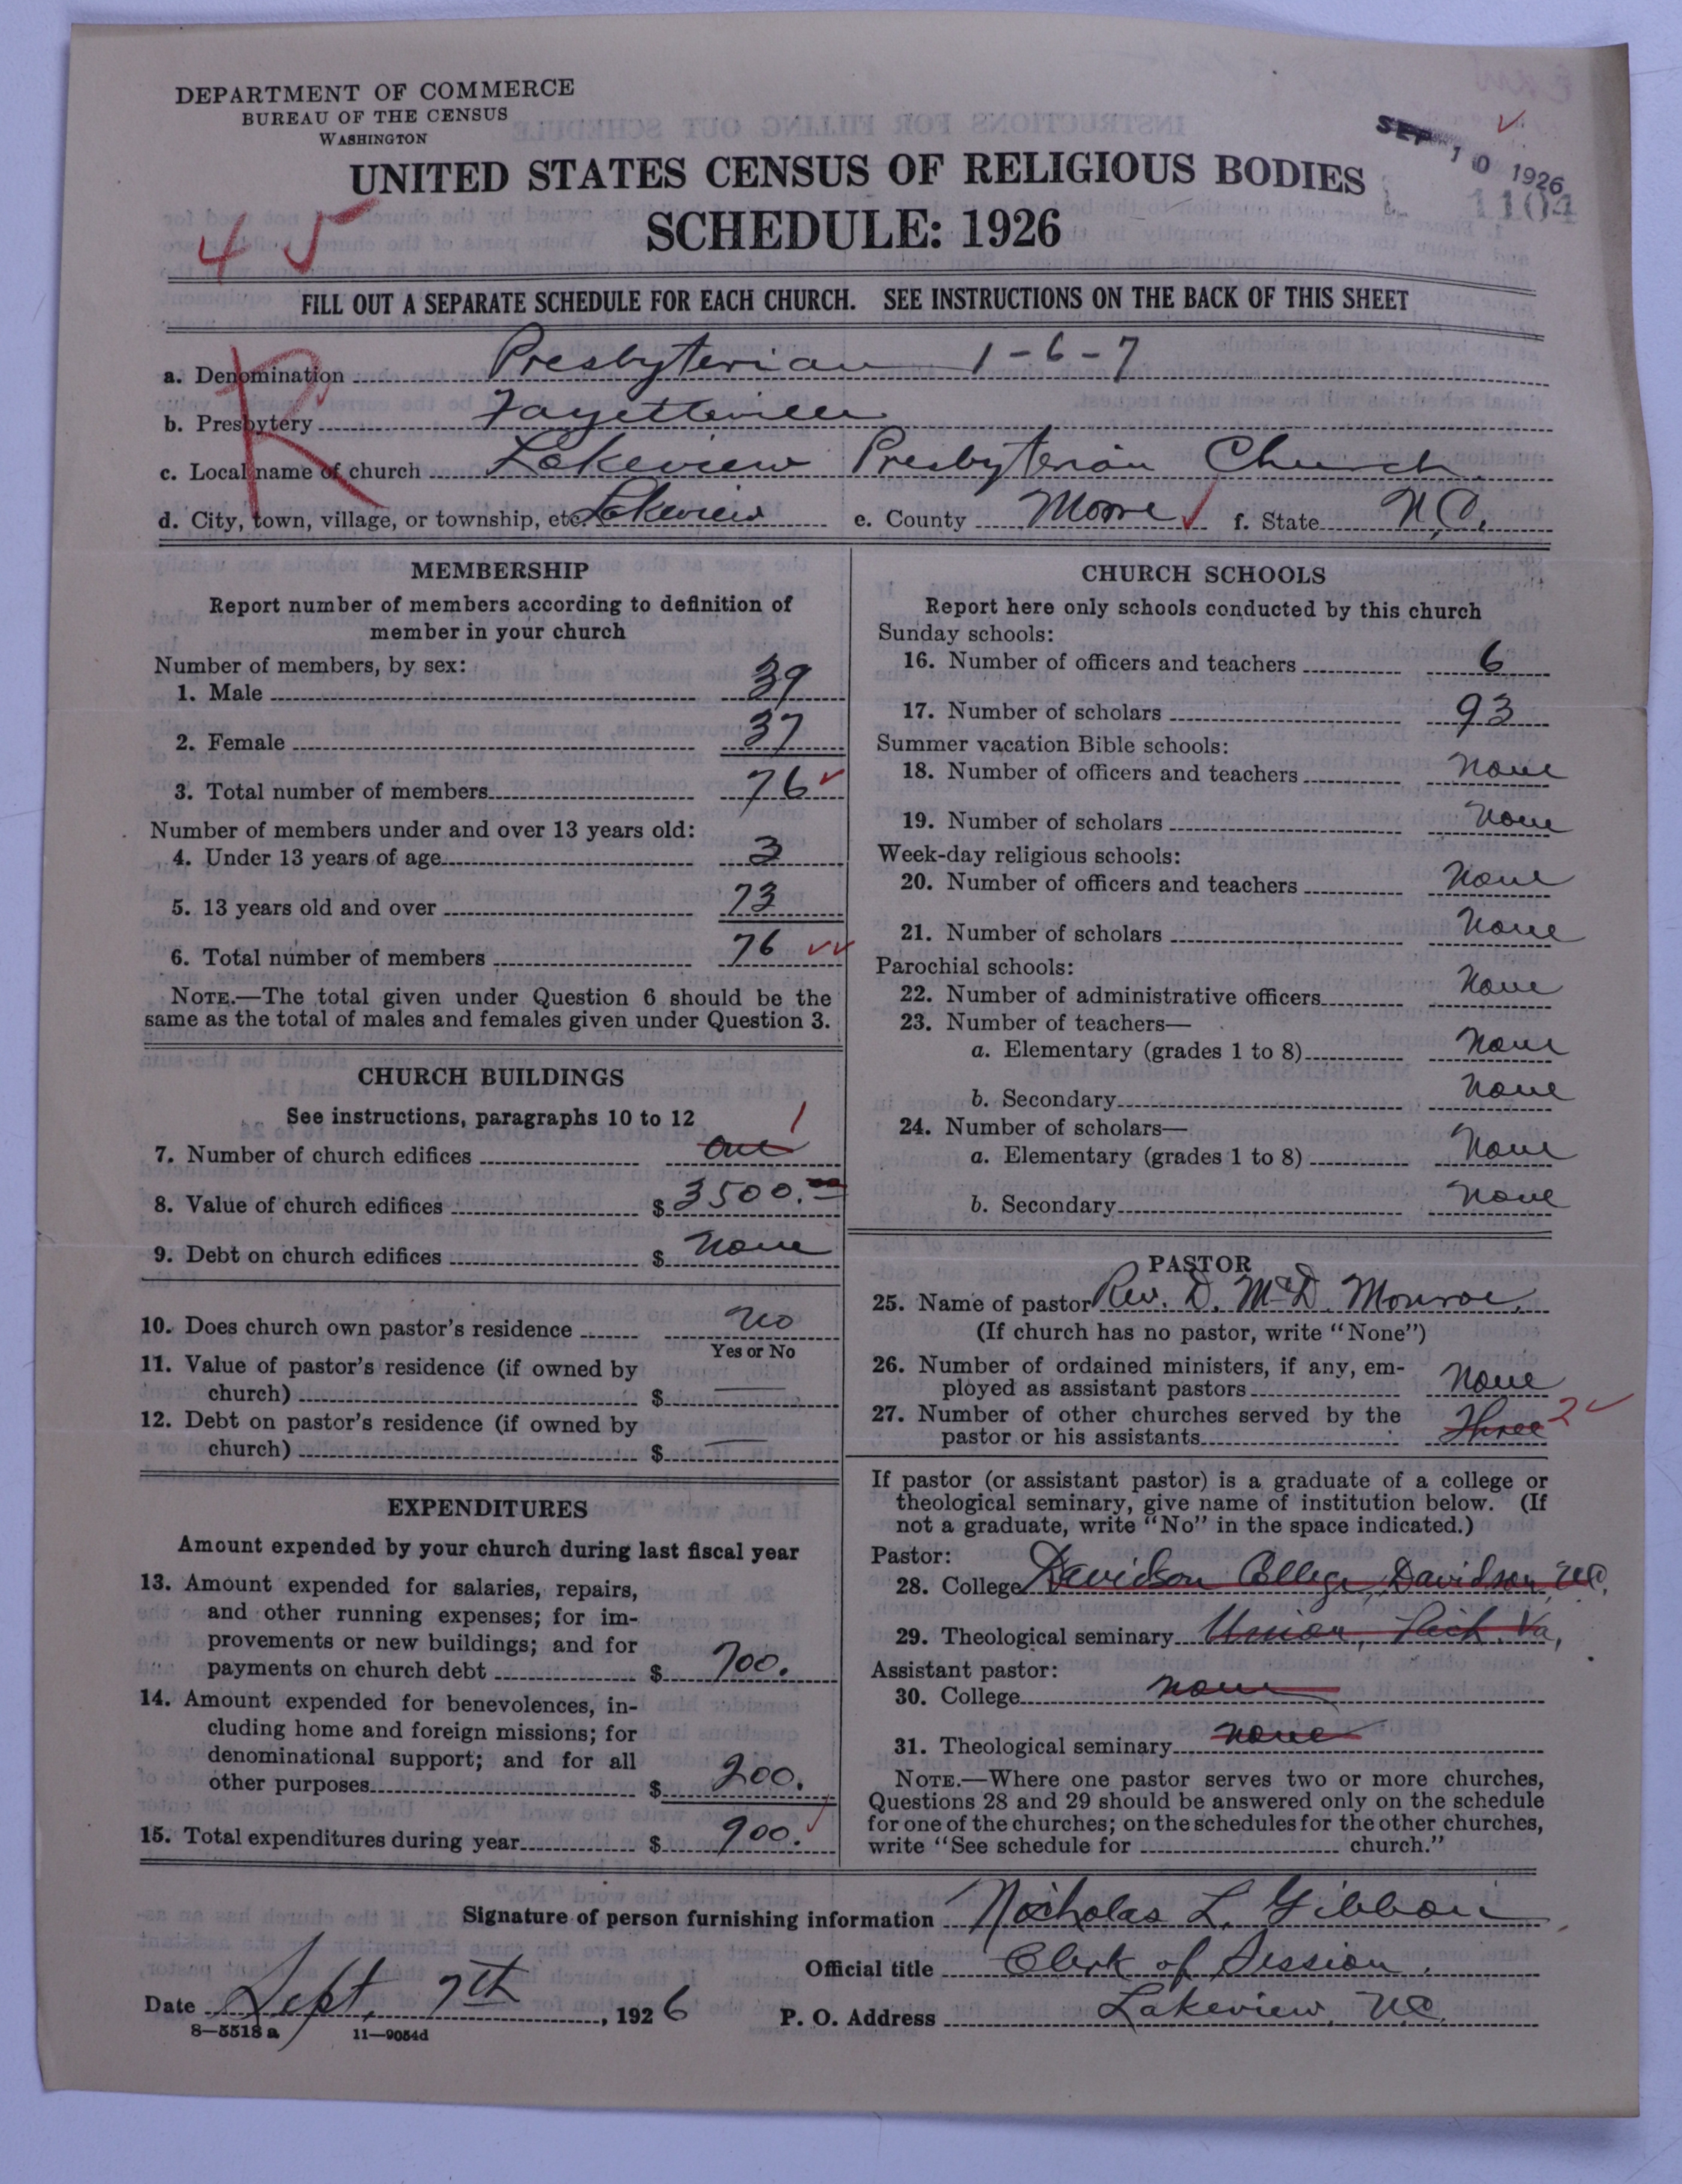 DEPARTMENT OF COMMERCE
BUREAU OF THE CENSUS
WASHINGTON
UNITED STATES CENSUS OF RELIGIOUS BODIES
SCHEDULE: 1926
SEP 10 1926
1104
45
FILL OUT A SEPARATE SCHEDULE FOR EACH CHURCH. SEE INSTRUCTIONS ON THE BACK OF THIS SHEET
R
a. Denomination Presbyterian 1-6-7
b. Presbytery Fayetteville
c. Local name of church Lakeview Presbyterian Church
d. City, town, village, or township, etc. Lakeview e. County Moore f. State N.C.
MEMBERSHIP
Report number of members according to definition of
member in your church
Number of members, by sex:
1. Male 39
2. Female 37
3. Total number of members 76
Number of members under and over 13 years old:
4. Under 13 years of age 3
5. 13 years old and over 73
6. Total number of members 76
NOTE.—The total given under Question 6 should be the
same as the total of males and females given under Question 3.
CHURCH BUILDINGS
See instructions, paragraphs 10 to 12
7. Number of church edifices one 1
8. Value of church edifices $ 3500.00
9. Debt on church edifices $ None
10. Does church own pastor's residence No
Yes or No
11. Value of pastor's residence (if owned by
church) $ —
12. Debt on pastor's residence (if owned by
church) $ —
EXPENDITURES
Amount expended by your church during last fiscal year
13. Amount expended for salaries, repairs,
and other running expenses; for im-
provements or new buildings; and for
payments on church debt $ 700.
14. Amount expended for benevolences, in-
cluding home and foreign missions; for
denominational support; and for all
other purposes $ 200.
15. Total expenditures during year $ 900.
CHURCH SCHOOLS
Report here only schools conducted by this church
Sunday schools:
16. Number of officers and teachers 6
17. Number of scholars 93
Summer vacation Bible schools:
18. Number of officers and teachers None
19. Number of scholars None
Week-day religious schools:
20. Number of officers and teachers None
21. Number of scholars None
Parochial schools:
22. Number of administrative officers None
23. Number of teachers—
a. Elementary (grades 1 to 8) None
b. Secondary None
24. Number of scholars—
a. Elementary (grades 1 to 8) None
b. Secondary None
PASTOR
25. Name of pastor Rev. D. McD. Monroe.
(If church has no pastor, write "None")
26. Number of ordained ministers, if any, em-
ployed as assistant pastors None
27. Number of other churches served by the
pastor or his assistants Three 2
If pastor (or assistant pastor) is a graduate of a college or
theological seminary, give name of institution below. (If
not a graduate, write "No" in the space indicated.)
Pastor:
28. College Davidson College, Davidson, N.C.
29. Theological seminary Union, Rich. Va,
Assistant pastor:
30. College none
31. Theological seminary none
NOTE.—Where one pastor serves two or more churches,
Questions 28 and 29 should be answered only on the schedule
for one of the churches; on the schedules for the other churches,
write "See schedule for church."
Signature of person furnishing information Nicholas L. Gibbon
Official title Clerk of Session.
Date Sept. 7th, 1926 P. O. Address Lakeview, N.C.
8—5518 a 11—9054d